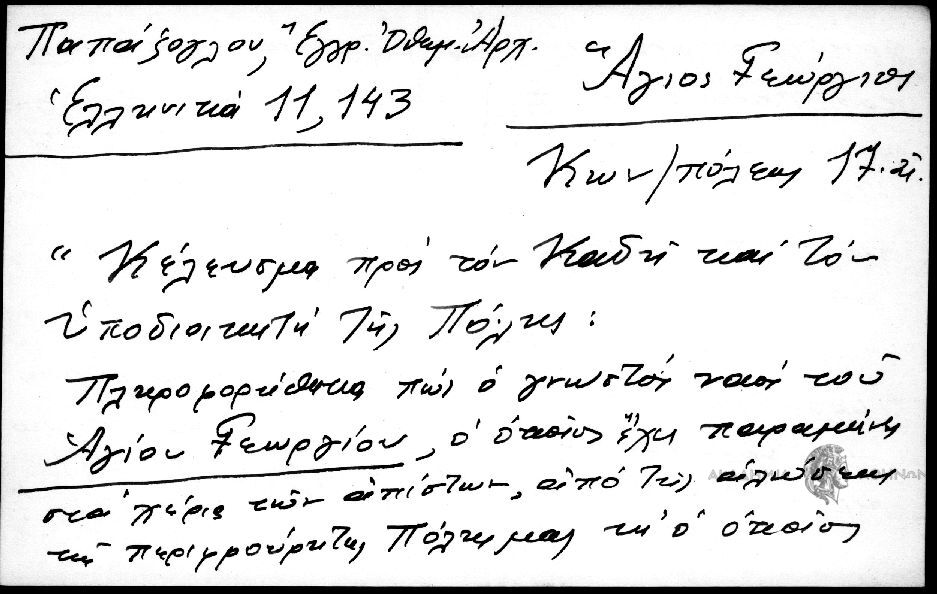 Παπάζογλου, Ἔγγρ. Ὀθωμ. Ἀρχ.
Ἑλληνικά 11, 143
Ἅγιος Γεώργιος
Κων/πόλεως 17. αἰ.
"Κέλευσμα πρός τόν Καδῆ καί τόν
Ὑποδιοικητή τῆς Πόλης:
Πληροφορήθηκα πώς ὁ γνωστός ναός τοῦ
Ἁγίου Γεωργίου, ὁ ὁποῖος ἔχει παραμείνει
στά χέρια τῶν ἀπίστων, ἀπό τῆς ἁλώσεως
τῆς περιφρούρητης Πόλης μας κι' ὁ ὁποῖος